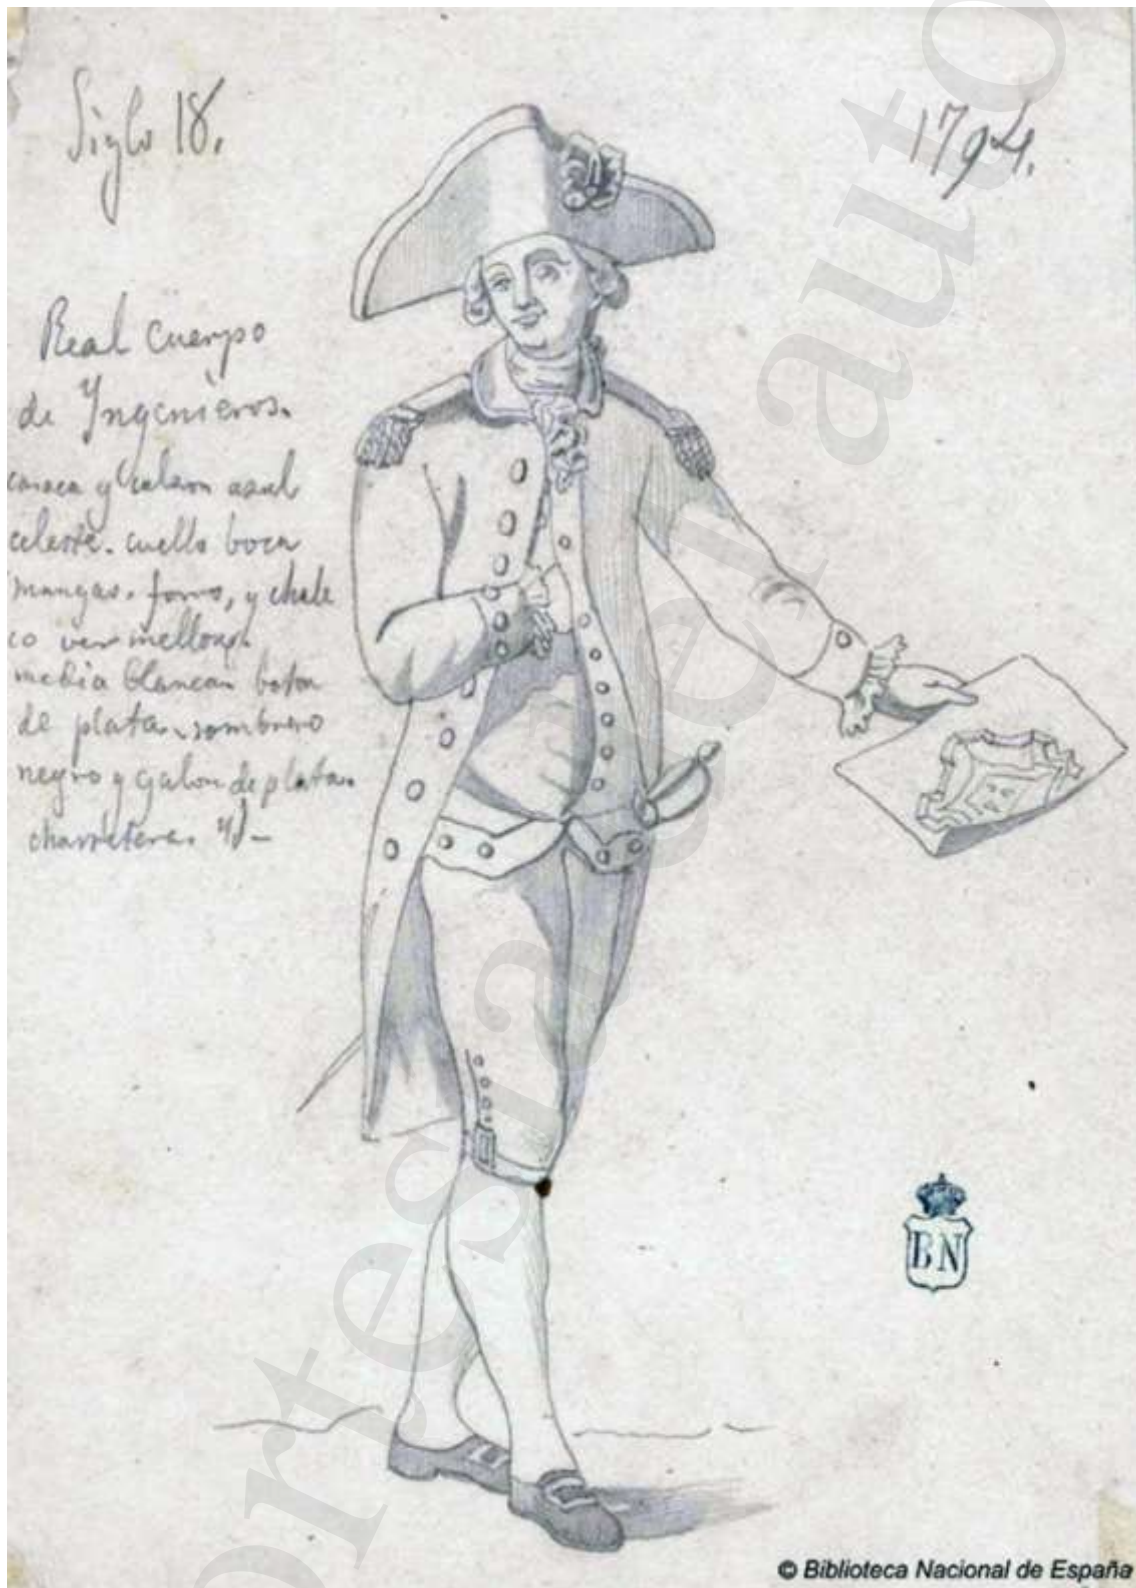 Siglo 18.
1794.
Real Cuerpo
de Yngenieros.
casaca y calzon azul
celeste. cuello boca
mangas. forro, y chale
co vermellon.
media blanca boton
de plata. sombrero
negro y galon de plata.
charretera.
BN
© Biblioteca Nacional de España
cortesía del autor